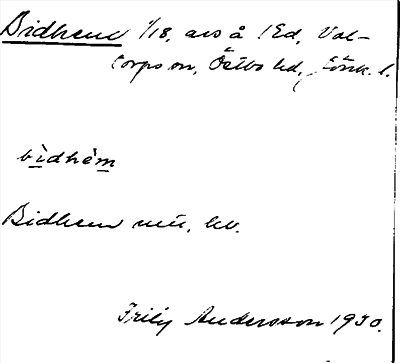 Bidhem 1/18, avs å 1Ed, Val-
torps sn, Östbo hd, Jönk. l.
bìdhèm
Bidhem mü, hv.
Frily Andersson 1930.